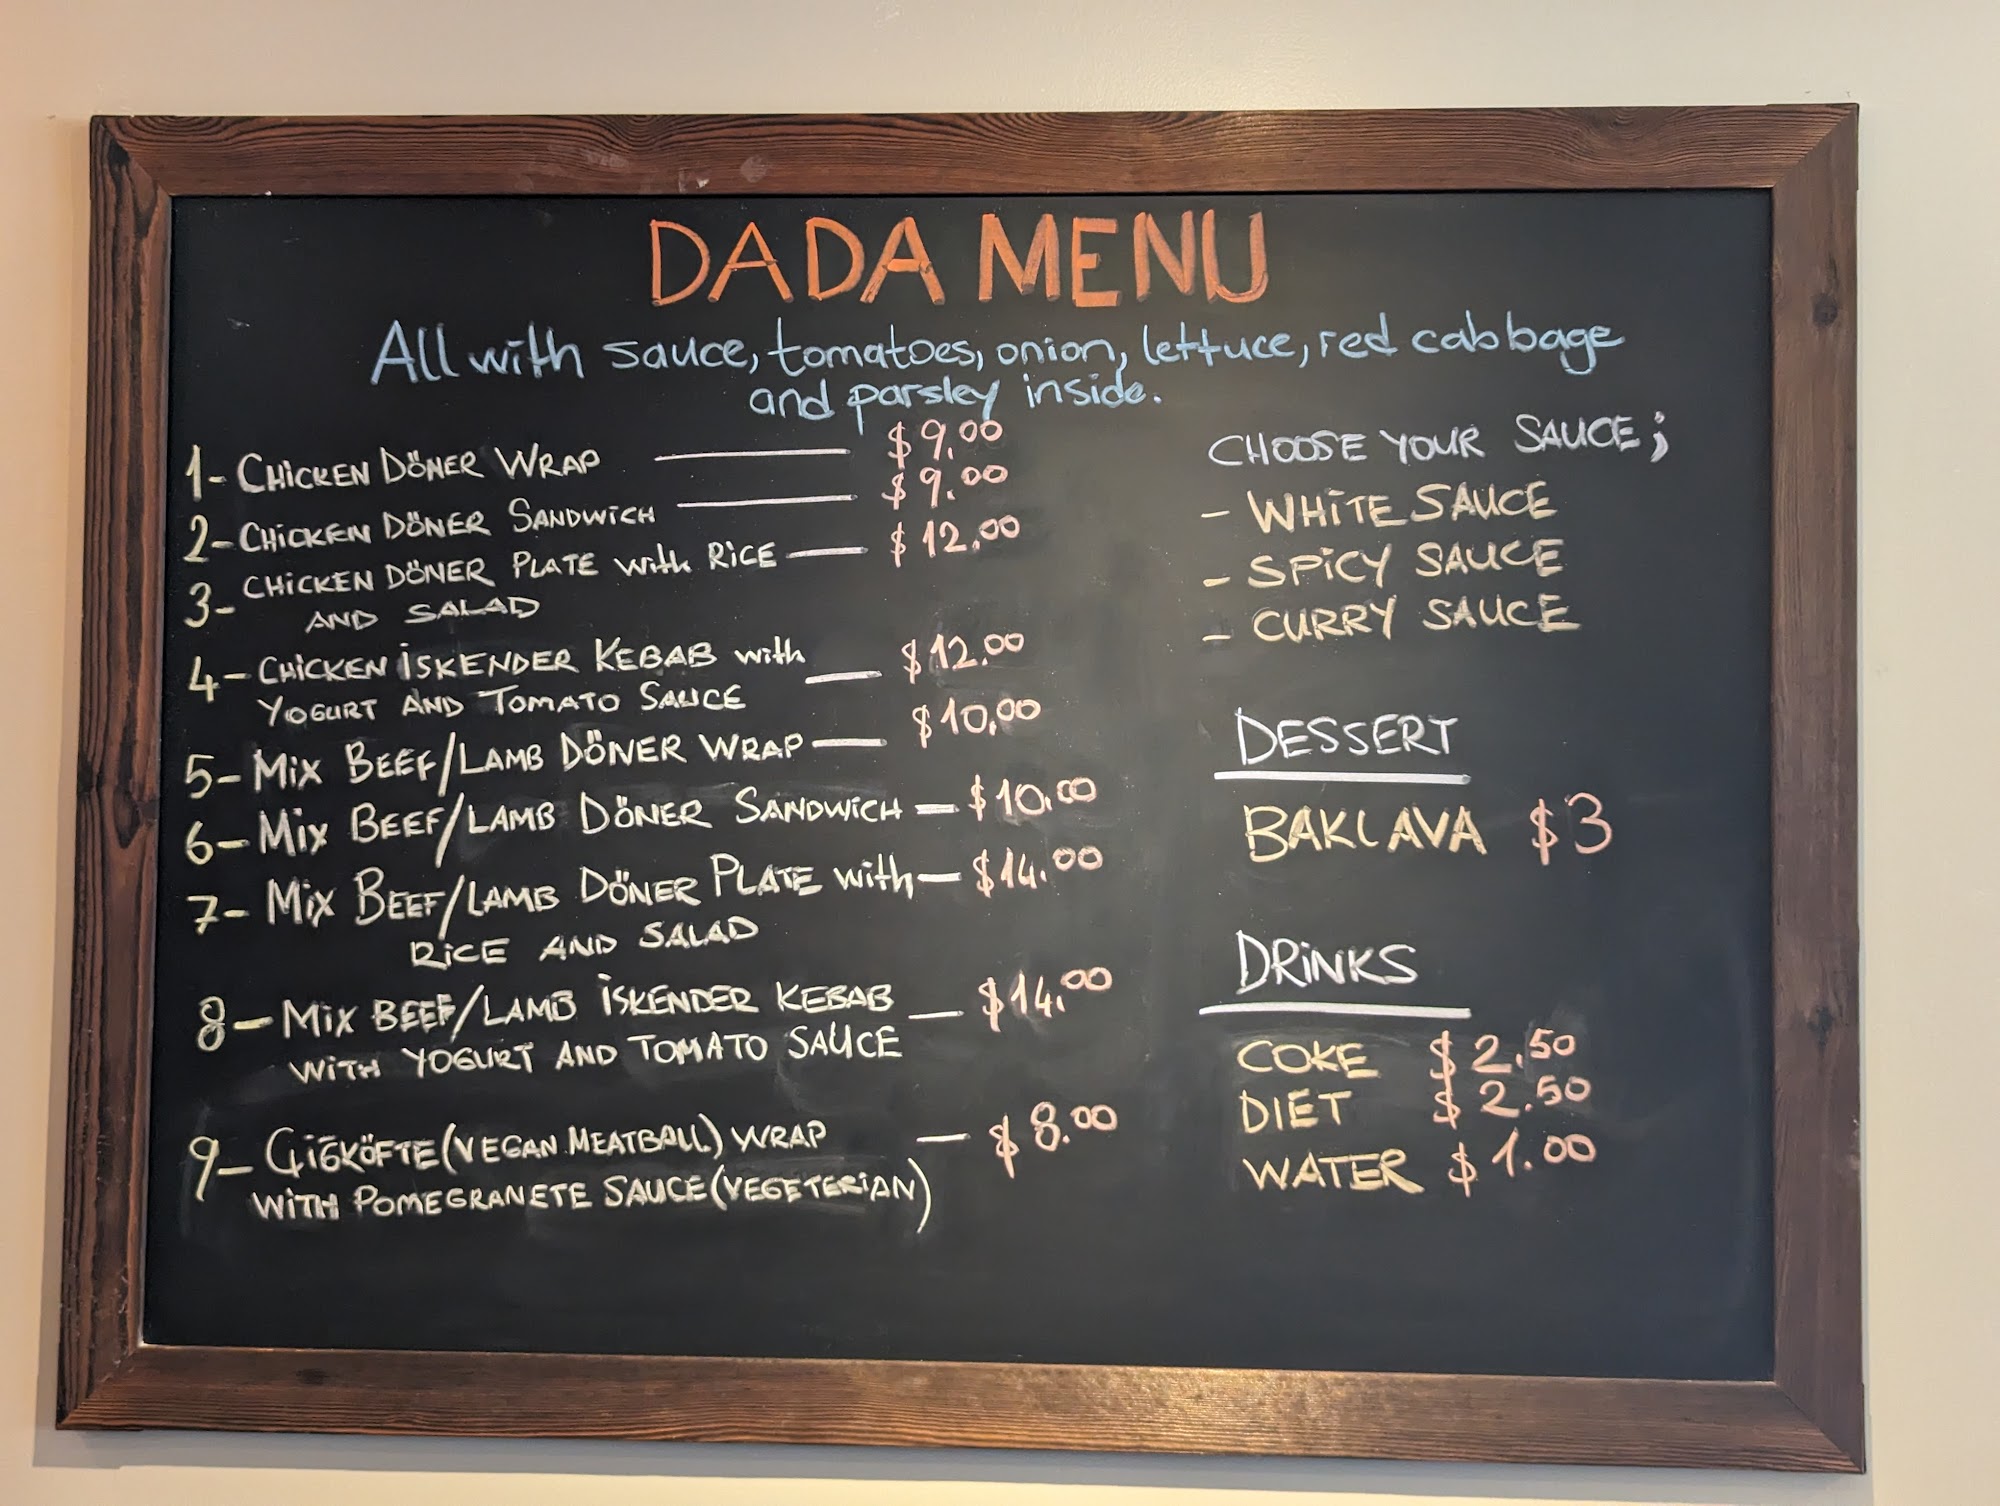 DADA MENU
All with sauce, tomatoes, onion, lettuce, red cabbage
and parsley inside.
1- CHICKEN DÖNER WRAP $9.00
2- CHICKEN DÖNER SANDWICH $9.00
3- CHICKEN DÖNER PLATE with RICE $12.00
AND SALAD
4- CHICKEN İSKENDER KEBAB with $12.00
YOGURT AND TOMATO SAUCE
5- MIX BEEF/LAMB DÖNER WRAP $10.00
6- MIX BEEF/LAMB DÖNER SANDWICH $10.00
7- MIX BEEF/LAMB DÖNER PLATE with $14.00
RICE AND SALAD
8- MIX BEEF/LAMB İSKENDER KEBAB $14.00
WITH YOGURT AND TOMATO SAUCE
9- ÇİĞKÖFTE (VEGAN MEATBALL) WRAP $8.00
WITH POMEGRANETE SAUCE (VEGETERIAN)
CHOOSE YOUR SAUCE;
- WHITE SAUCE
- SPICY SAUCE
- CURRY SAUCE
DESSERT
BAKLAVA $3
DRINKS
COKE $2.50
DIET $2.50
WATER $1.00